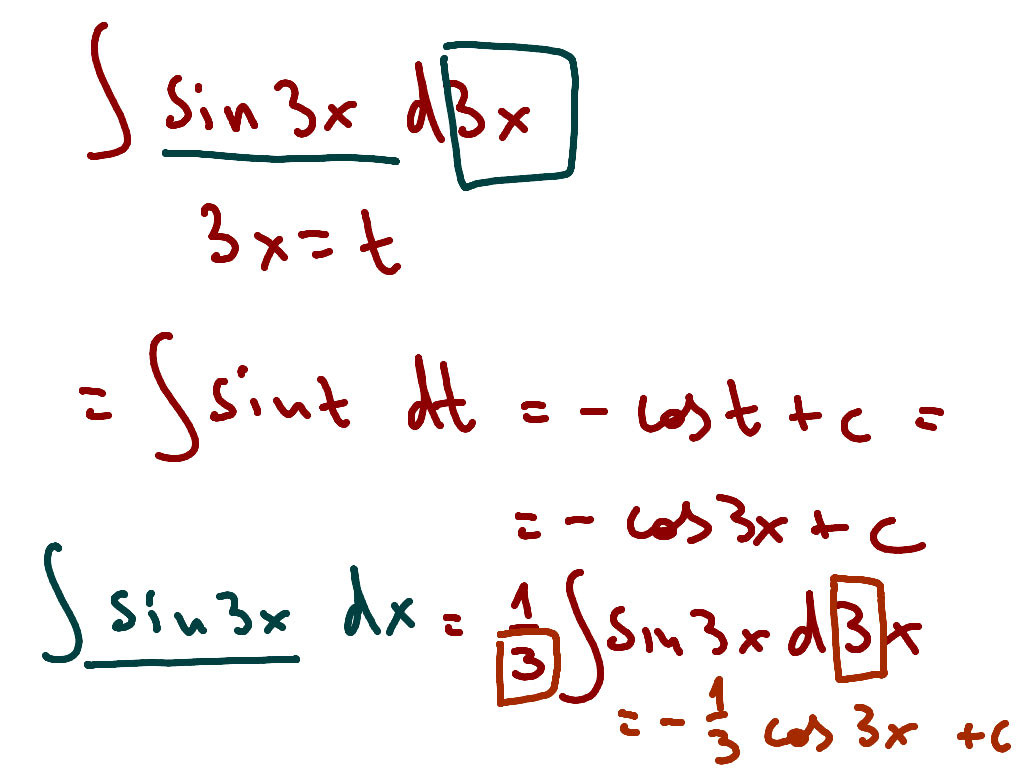 ∫ sin 3x d3x
3x = t
= ∫ sin t dt = - cos t + c =
= - cos 3x + c
∫ sin 3x dx = 1/3 ∫ sin 3x d3x
= - 1/3 cos 3x + c